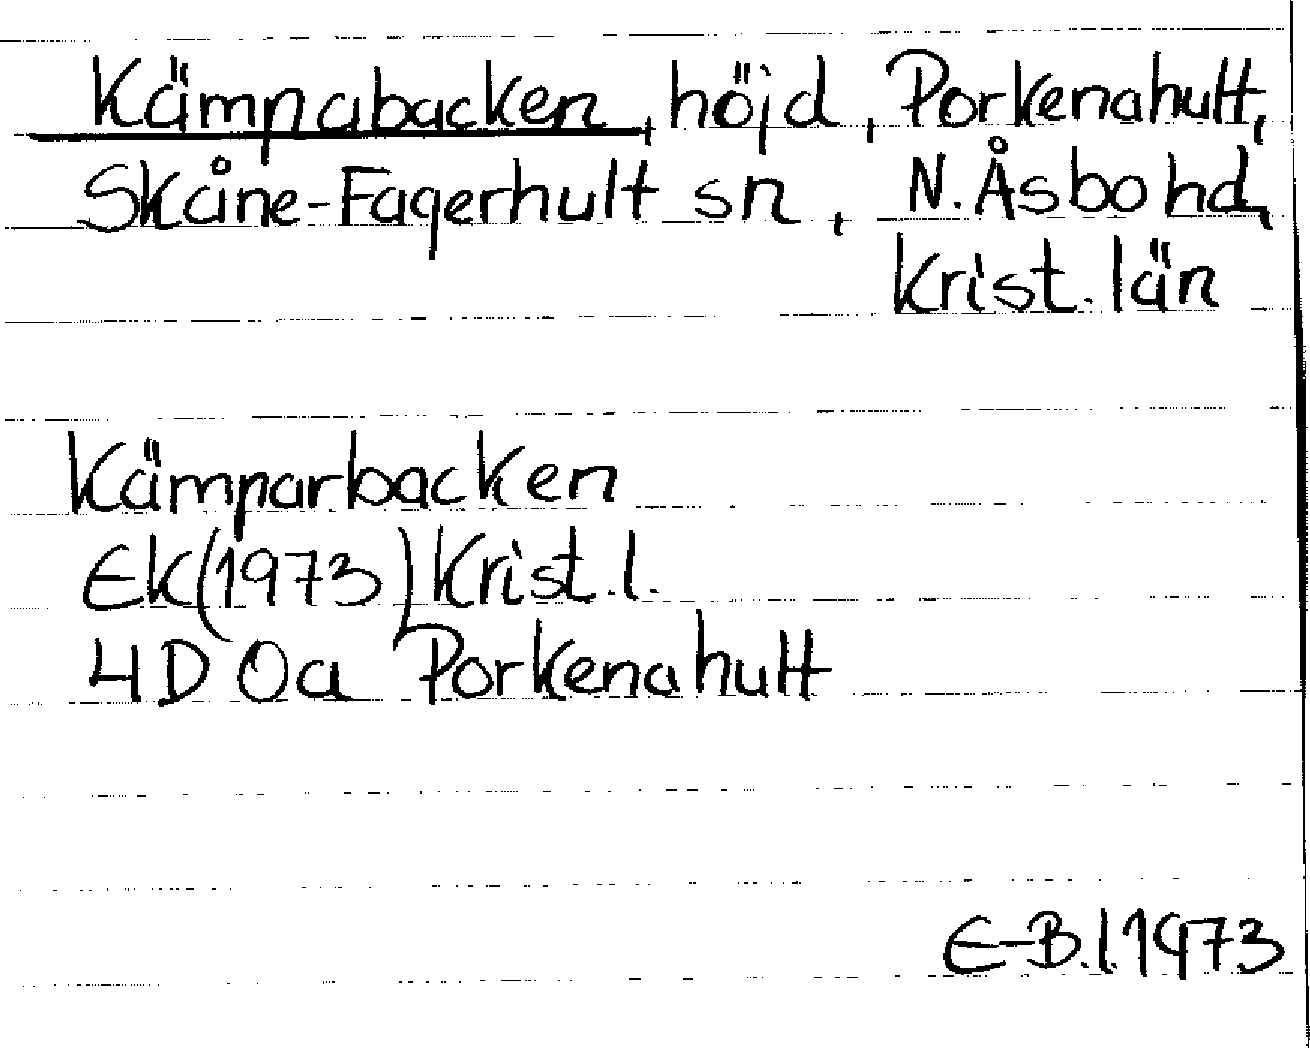 Kämpabacken, höjd, Porkenahult,
Skåne-Fagerhult sn, N. Åsbo hd,
Krist. län
Kämparbacken
Ek(1973) Krist. l.
4D 0a Porkenahult
E-B.l.1973